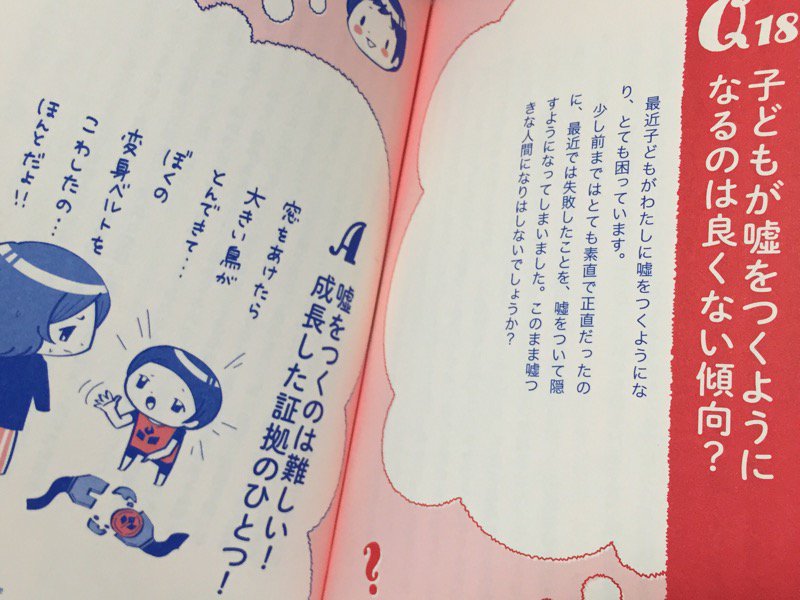 Q18
子どもが嘘をつくように
なるのは良くない傾向？
最近子どもがわたしに嘘をつくようにな
り、とても困っています。
少し前まではとても素直で正直だったの
に、最近では失敗したことを、嘘をついて隠
すようになってしまいました。このまま嘘つ
きな人間になりはしないでしょうか？
?
A 嘘をつくのは難しい！
成長した証拠のひとつ！
窓をあけたら
大きい鳥が
とんできて…
ぼくの
変身ベルトを
こわしたの…
ほんとだよ!!